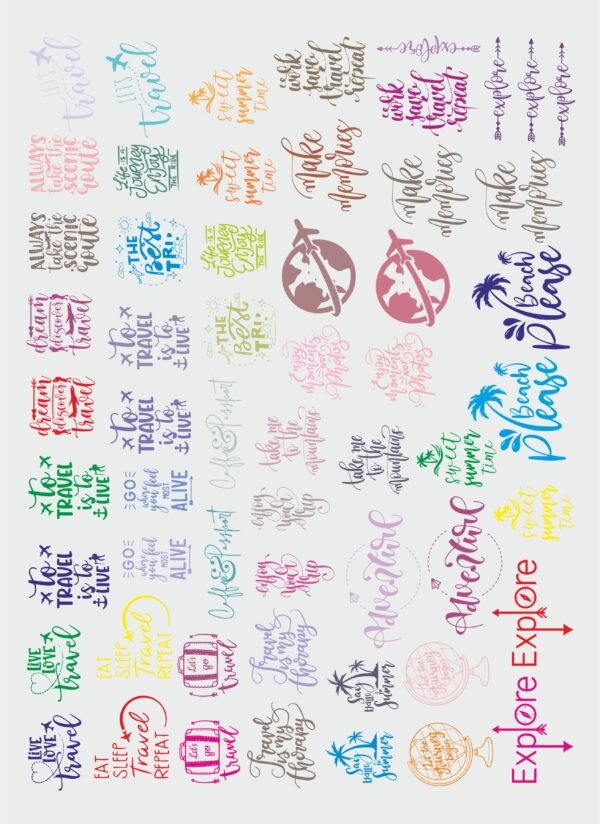 LET'S
travel
LET'S
travel
sweet
summer
time
work
save
travel
repeat
explore
work
save
travel
repeat
explore
explore
explore
ALWAYS
take the
SCENIC
route
Life is a
JOURNEY
ENJOY
THE RIDE
sweet
summer
time
make
memories
make
memories
make
memories
ALWAYS
take the
SCENIC
route
THE
Best
TRI
Life is a
JOURNEY
ENJOY
THE RIDE
Beach
Please
dream
discover
travel
to
TRAVEL
is to
LIVE
THE
Best
TRI
Enjoy
moments
not
Photos
Enjoy
moments
not
Photos
Beach
Please
dream
discover
travel
to
TRAVEL
is to
LIVE
Coffee &
Passport
take me
to the
mountains
take me
to the
mountains
sweet
summer
time
to
TRAVEL
is to
LIVE
GO
where
you feel
MOST
ALIVE
Coffee &
Passport
enjoy
your
trip
Adventure
Adventure
sweet
summer
time
to
TRAVEL
is to
LIVE
GO
where
you feel
MOST
ALIVE
enjoy
your
trip
LIVE
LOVE
travel
EAT
SLEEP
Travel
REPEAT
Let's
go
travel
Travel
is my
therapy
Say
Hello
to
Summer
Let the
journey
begin
Explore
LIVE
LOVE
travel
EAT
SLEEP
Travel
REPEAT
Let's
go
travel
Travel
is my
therapy
Say
Hello
to
Summer
Let the
journey
begin
Explore